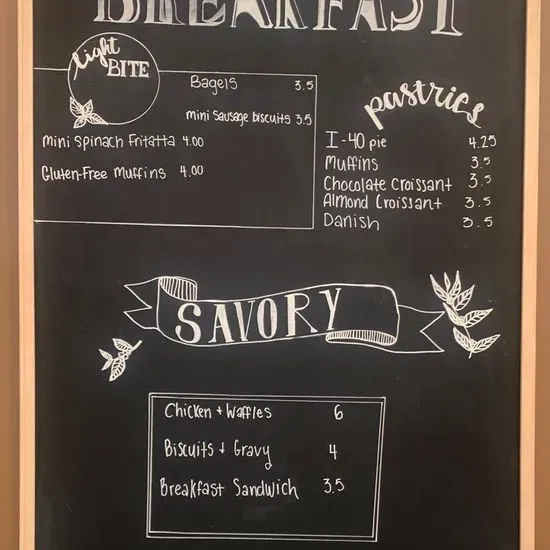 BREAKFAST
light
BITE
Bagels 3.5
mini Sausage biscuits 3.5
mini Spinach Fritatta 4.00
Gluten-Free Muffins 4.00
pastries
I-40 pie 4.25
Muffins 3.5
Chocolate Croissant 3.5
Almond Croissant 3.5
Danish 3.5
SAVORY
Chicken + Waffles 6
Biscuits + Gravy 4
Breakfast Sandwich 3.5